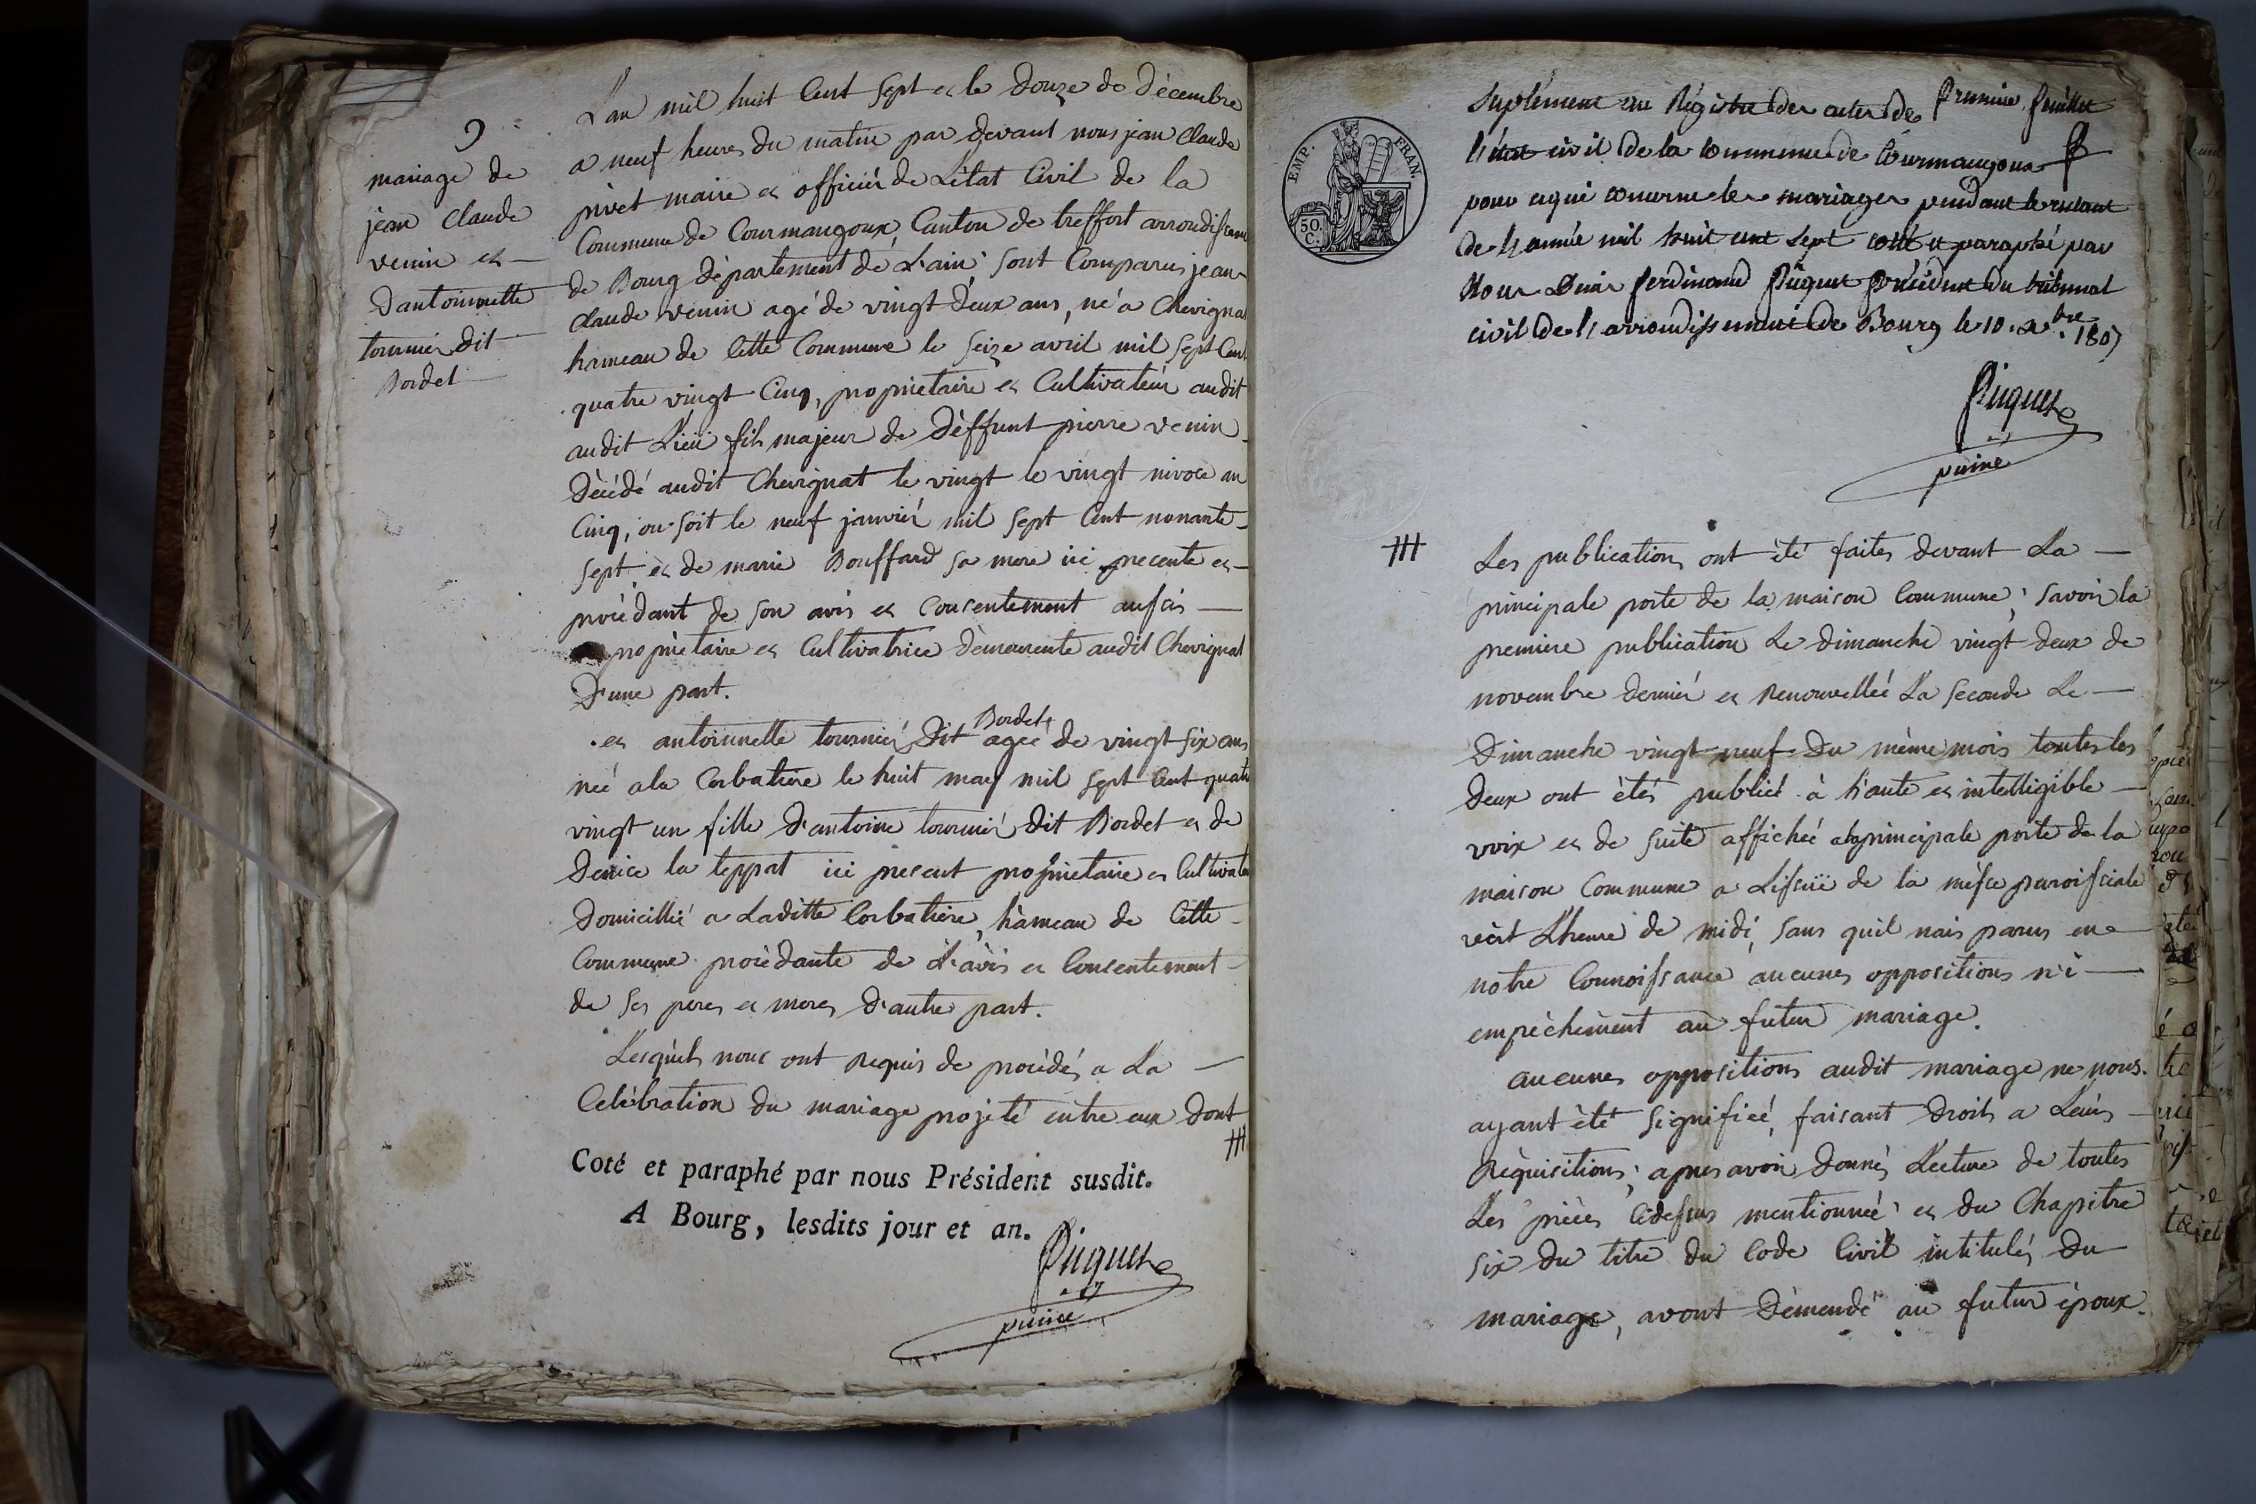 9
mariage de
jean Claude
venin et
D'antoinnette
tournier dit
Bordet
L'an mil huit Cent Sept et le Douze de Décembre
a neuf heures du matin par devant nous jean Claude
privet maire et officiér de L'état Civil de la
Commune de Courmangoux Canton de treffort arrondissem
de Bourg département de L'ain sont Comparus jean
Claude venin agé de vingt deux ans, né a Chevignat
hameau de Cette Commune le Seize avril mil Sept Cent
quatre vingt Cinq, propriétaire et Cultivateur audit
audit Lieu fils majeur de Déffunt pierre venin
Décédé audit Chevignat le vingt le vingt nivose an
Cinq, ou soit le neuf janviér mil sept Cent nonante
Sept et de marie Bouffard sa mere ici presente et
procédant de son avis et consentement aussi
propriétaire et Cultivatrice Demeurente audit Chevignat
D'une part.
et antoinnette tournier Dit Bordet agée de vingt six ans
née a la Corbatiere le huit may mil sept Cent quatre
vingt un fille D'antoine tourniér Dit Bordet et de
Denice la teppat ici present propriétaire et Cultivateur
Domicillié a Laditte Corbatiere, hameau de Cette
Commune procédante de L'avis et Consentement
de ses peres et meres D'autre part.
Lesquels nous ont Requis de procédér a La
Celébration du mariage projeté entre eux Dont
Coté et paraphé par nous Président susdit.
A Bourg, lesdits jour et an.
Piquet
puiné
EMP. FRAN.
50.
C.
Suplément au Régistre des actes de premier feuillet
l'état civil de la commune de Courmangoux
pour ce qui concerne les mariages pendant le restant
de l'année mil huit cent sept coté et paraphé par
Nous Denis ferdinand Piquet Président du tribunal
civil de l'arrondissement de Bourg le 10. Xbre 1807
Piquet
puiné
Les publications ont été faites devant La
principale porte de la maison Commune; Savoir la
premiere publication Le Dimanche vingt deux de
novembre derniér et Renouvellée La Seconde Le
Dimanche vingt neuf Du même mois toutes les
Deux ont étés publié à haute et intelligible
voix et de suite affichée a la principale porte de la
maison Commune a L'issüe de la messe paroissiale
vèrt L'heure de midi, sans quil nais parus en
notre Connoissance aucunes oppositions n'i
empèchement au futur mariage.
aucunes oppositions audit mariage ne nous
ayant été Signifieé, faisant Droit a Leurs
Réquisitions; apres avoir Donnés Lecture de toutes
Les pièces Cidessus mentionnée et du Chapitre
Six du titre du Code Civil intitulés Du
mariage, avont Démendé au futur époux